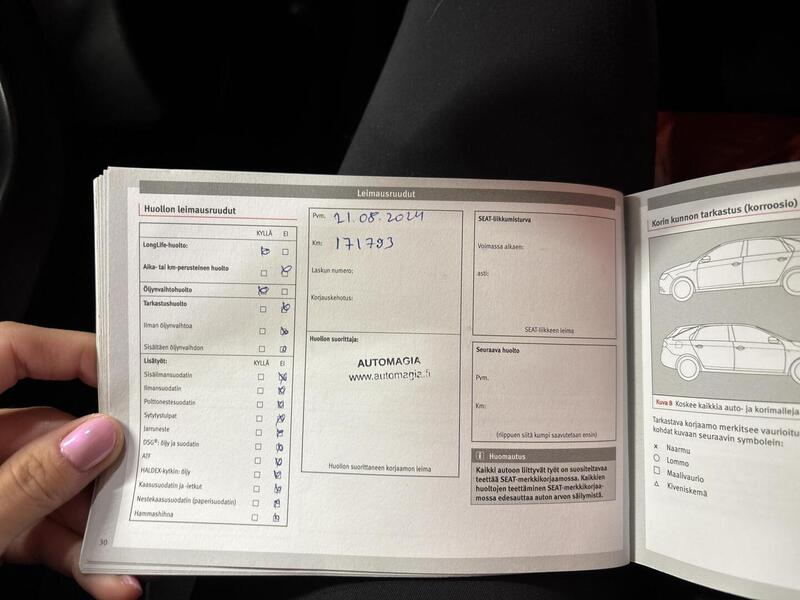 Leimausruudut
Huollon leimausruudut
KYLLÄ EI
LongLife-huolto:
Aika- tai km-perusteinen huolto
Öljynvaihtohuolto
Tarkastushuolto
Ilman öljynvaihtoa
Sisältäen öljynvaihdon
Lisätyöt: KYLLÄ EI
Sisäilmansuodatin
Ilmansuodatin
Polttonestesuodatin
Sytytystulpat
Jarruneste
DSG®: öljy ja suodatin
ATF
HALDEX-kytkin: öljy
Kaasusuodatin ja -letkut
Nestekaasusuodatin (paperisuodatin)
Hammashihna
30
Pvm. 21.08.2024
Km: 171793
Laskun numero:
Korjauskehotus:
Huollon suorittaja:
AUTOMAGIA
www.automagia.fi
Huollon suorittaneen korjaamon leima
SEAT-liikkumisturva
Voimassa alkaen:
asti:
SEAT-liikkeen leima
Seuraava huolto
Pvm.
Km:
(riippuen siitä kumpi saavutetaan ensin)
i Huomautus
Kaikki autoon liittyvät työt on suositeltavaa
teettää SEAT-merkkikorjaamossa. Kaikkien
huoltojen teettäminen SEAT-merkkikorjaa-
mossa edesauttaa auton arvon säilymistä.
Korin kunnon tarkastus (korroosio)
Kuva 8 Koskee kaikkia auto- ja korimalleja
Tarkastava korjaamo merkitsee vaurioitu
kohdat kuvaan seuraavin symbolein:
× Naarmu
○ Lommo
□ Maalivaurio
△ Kiveniskemä